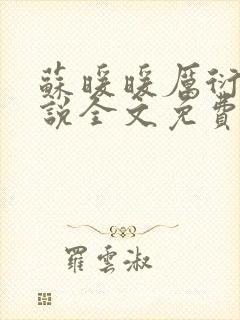 蘇暖暖厲衍
說全文免費
羅雲淑